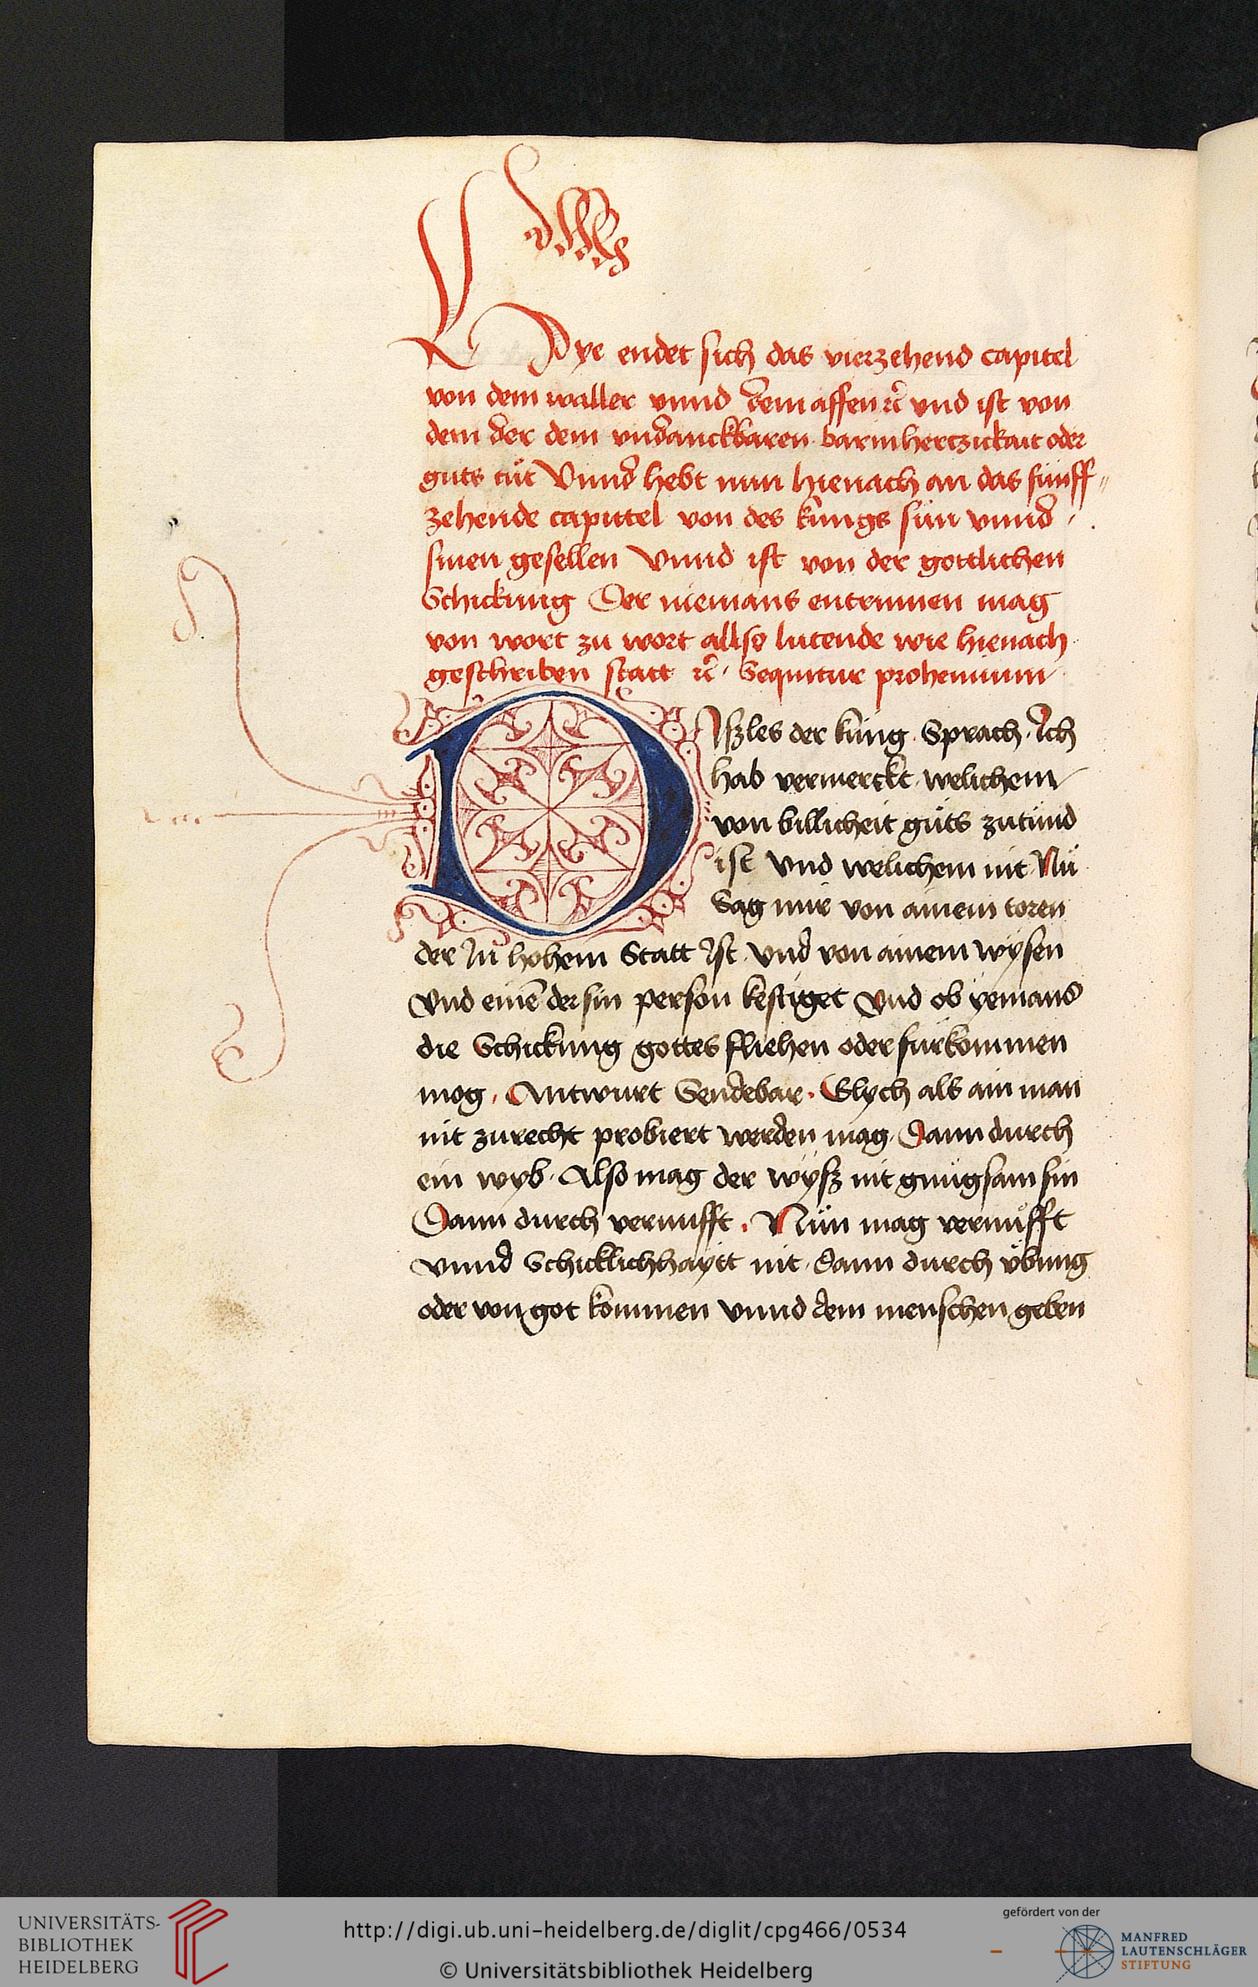 Hye endet sich das vierzehend capitel
von dem waller vnnd dem affen ꝛc̃ vnd ist von
dem der dem vndanckbaren barmhertzickait oder
guts tůt Vnnd hebt nun hienach an das fünff„
zehende capittel von des küngs sun vnnd
sinen gesellen Vnnd ist von der gottlichen
Schickung Der niemans entrinnen mag
von wort zu wort allso lutende wie hienach
geschriben statt ꝛc̃ · Sequitur prohemium
DIszles der küng · Sprach · Ich
hab vermerckt welichem
von billicheit gůts zutünd
ist Vnd welichem nit Nü
Sag mir von ainem toren
der In hohem Statt Ist · Vnd von ainem wÿsen
Vnd einē der sin person kestiget Vnd ob yemans
die Schickung gottes fliehen oder fürkommen
mog · Antwurt Sendebar · Glych als ain man
nit zurecht probiert werden mag · Dann durch
ein wyb · Also mag der wÿsz nit gnügsam sin
Dann durch vernufft · Nün mag vernůfft
vnnd Schicklichhaÿtt nit · dann durch vbung
oder von got kommen vnnd dem menschen geben
UNIVERSITÄTS-
BIBLIOTHEK
HEIDELBERG
http://digi.ub.uni-heidelberg.de/diglit/cpg466/0534
© Universitätsbibliothek Heidelberg
gefördert von der
MANFRED
LAUTENSCHLÄGER
STIFTUNG